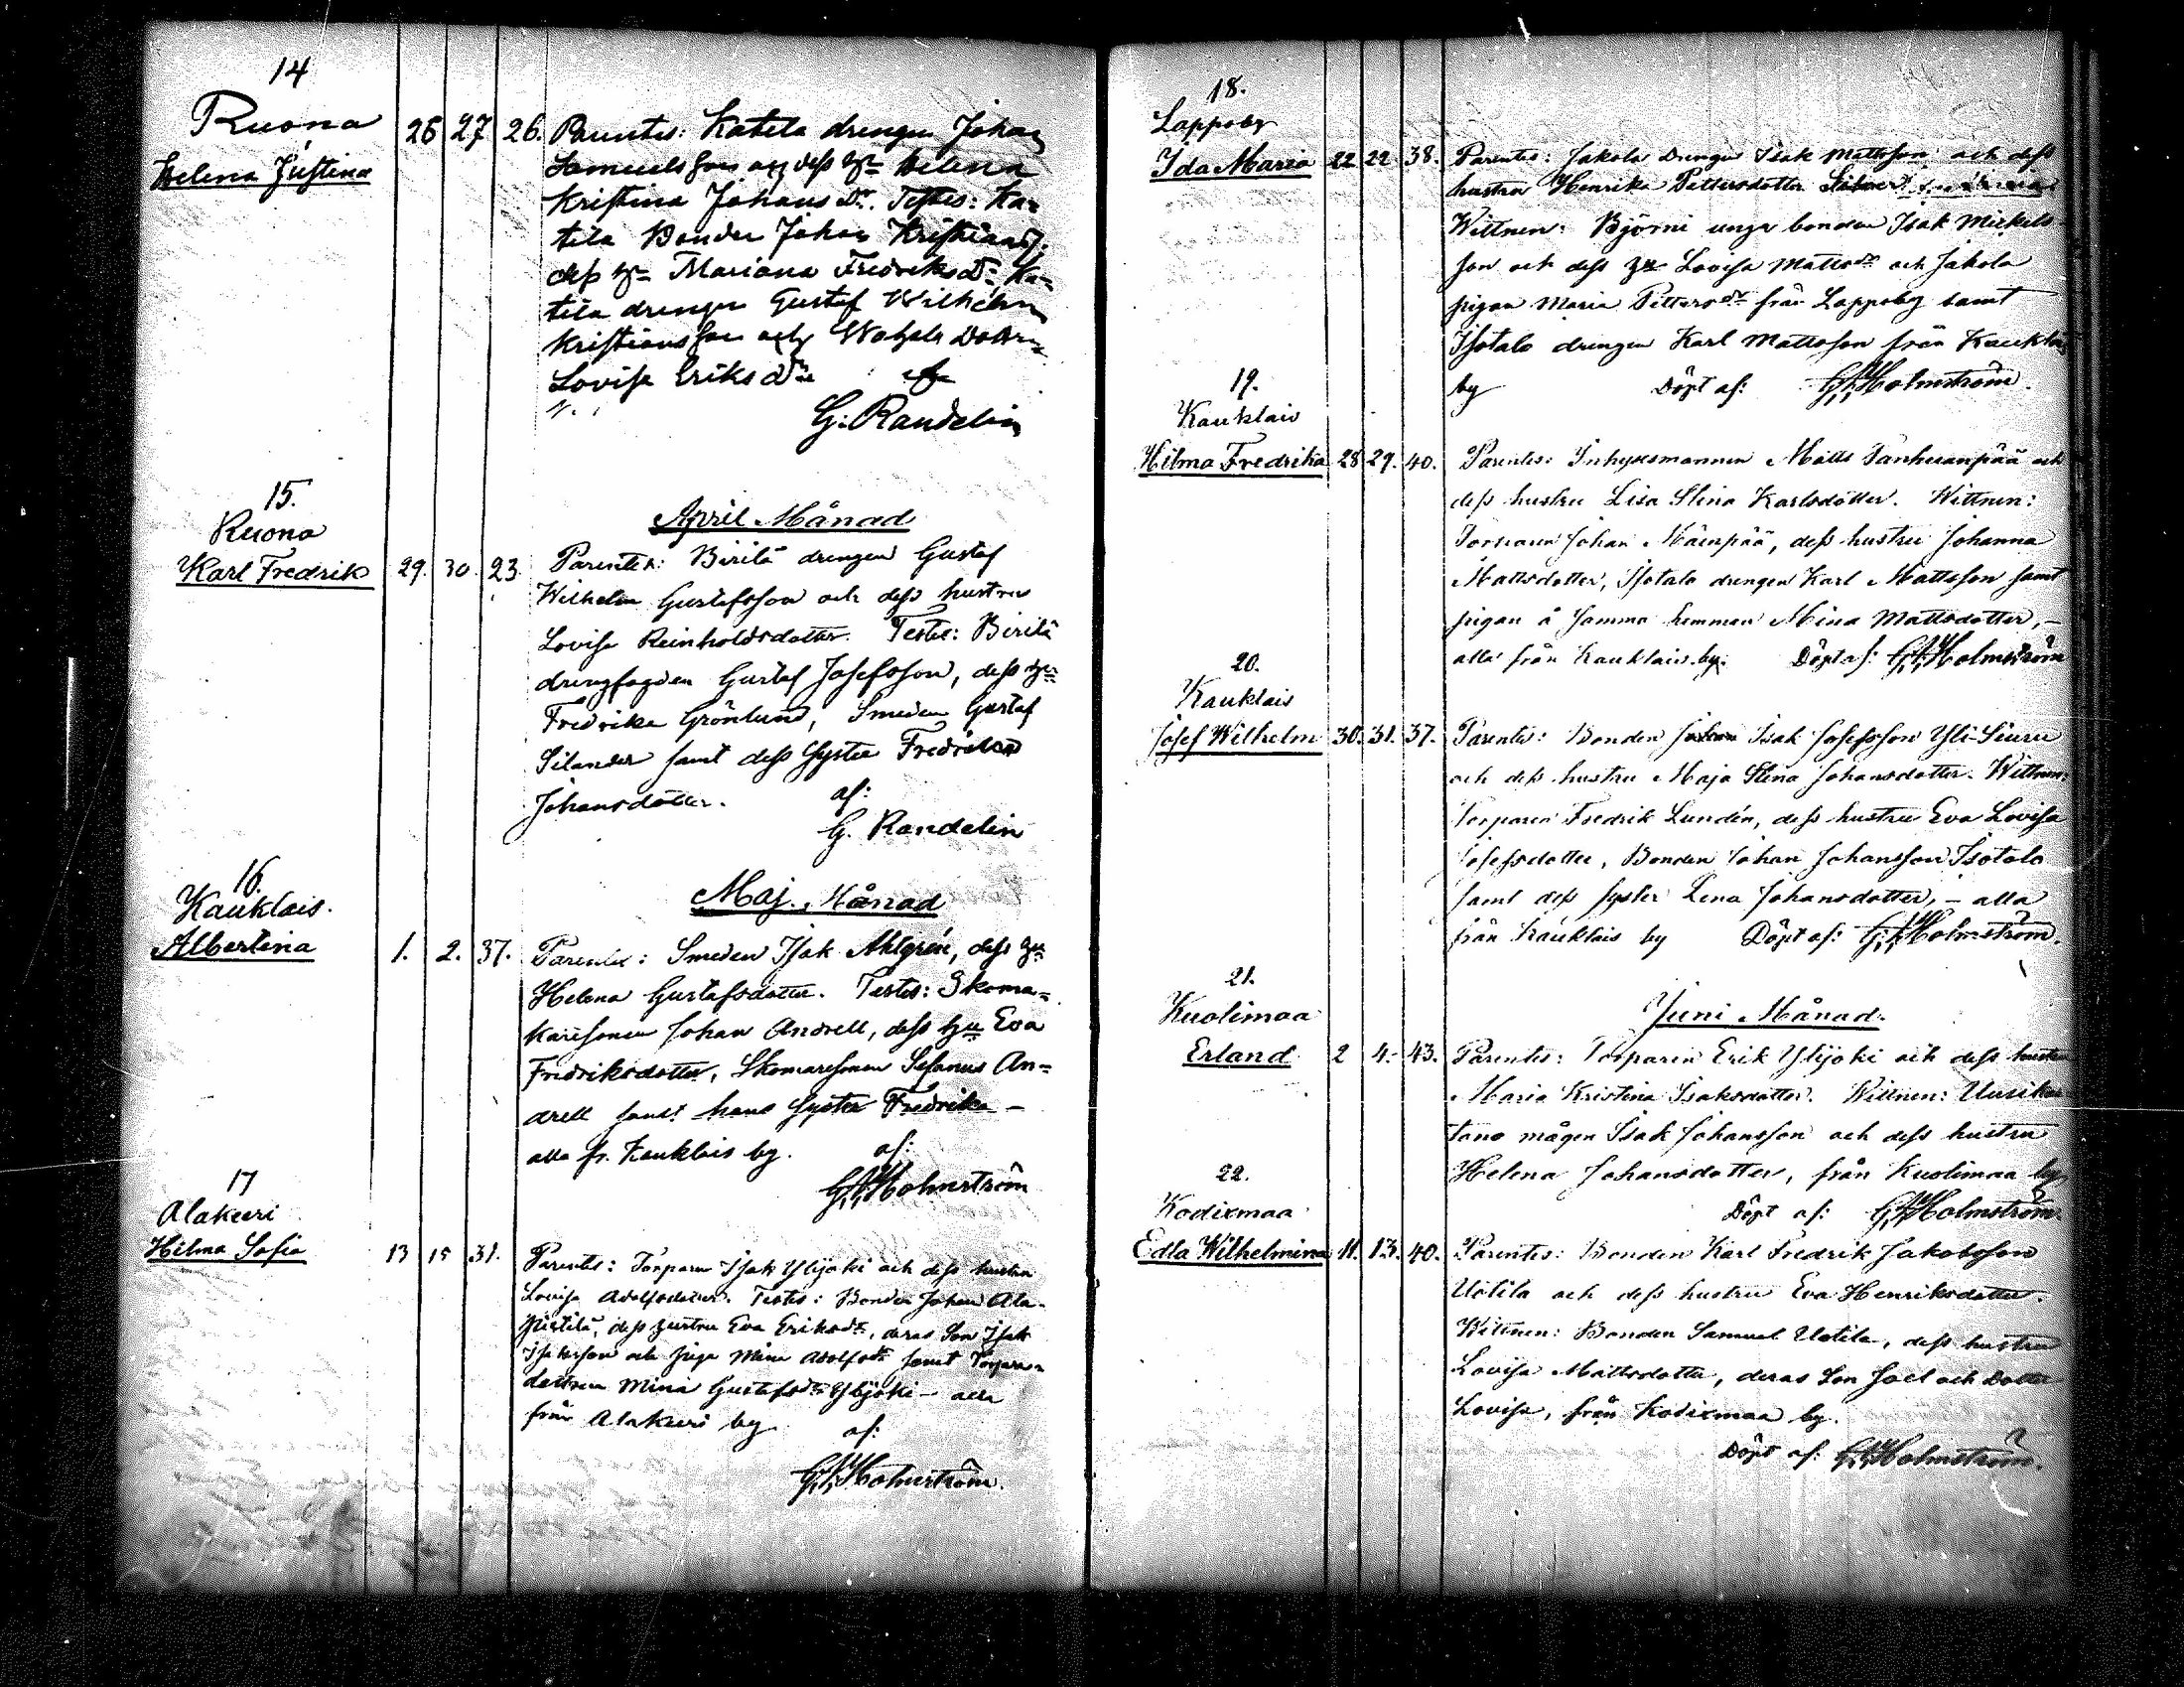 14
Ruona
Helena Justina 26 27 26. Parentes: Katila drengen Johan
Samuelsson och dess h:u Helena
Kristina Johans Dr. Testes: Ka=
tila Bonden Johan Kristianss.
dess h:u Mariana Fredriks Dr Ka=
tila drengen Gustaf Wilhelm
Kristiansson och Dottren
Lovisa Eriks dr af
G: Randelin
15.
April Månad
Ruona
Karl Fredrik 29. 30. 23. Parentes: Birilä drengen Gustaf
Wilhelm Gustafsson och dess hustru
Lovisa Reinholdsdotter. Testes: Birilä
drengfogden Gustaf Josefsson, dess h:u
Fredrika Grönlund, Smeden Gustaf
Silander samt dess Syster Fredrika
Johansdotter. af:
G. Randelin
16.
Kauklais.
Maj. Månad
Albertina 1. 2. 37. Parentes: Smeden Isak Ahlgrén, dess h:u
Helena Gustafsdotter. Testes: Skoma=
karesonen Johan Andrell, dess h:u Eva
Fredriksdotter, Skomaresonen Sefanus An=
drell samt hans Syster Fredrika –
alla fr. Kauklais by. af:
G.A.Holmström
17
Alakeeri
Hilma Sofia 13 15 31. Parentes: Torparn Isak Ylijoki och dess hustru
Lovisa Adolfsdotter. Testes: Bonden Johan Ala-
Pietilä, dess hustru Eva Eriksdr, deras Son Isak
och piga Mina Adolfsdr samt Torpare=
dottren Mina Gustafsdr Ylijoki – alla
från Alakeeri by af:
G.A.Holmström.
18.
Lappoby
Ida Maria 22 22 38. Parentes: Jakola Drengen Isak Mattsson och dess
hustru Henrika Pettersdotter
Wittnen: Björni unga bonden Isak Mickels
son och dess h:u Lovisa Mattsdr och Jakola
pigan Maria Pettersdr från Lappoby samt
Isotalo drengen Karl Mattsson från Kauklais
by Döpt af: G.A.Holmström.
19.
Kauklais
Hilma Fredrika 28 29. 40. Parentes: Inhysesmannen Matts Tanhuanpää och
dess hustru Lisa Stina Karlsdotter. Wittnen:
Torparen Johan Mäenpää, dess hustru Johanna
Mattsdotter, Isotalo drengen Karl Mattsson samt
pigan å samma hemman Mina Mattsdotter, –
alla från Kauklais by. Döpt af: G.A.Holmström
20.
Kauklais
Josef Wilhelm 30. 31. 37. Parentes: Bonden Isak Josefsson Yli-Siuru
och dess hustru Maja Stina Johansdotter. Wittnen:
Torparen Fredrik Lundén, dess hustru Eva Lovisa
Josefsdotter, Bonden Johan Johansson Isotalo
samt dess syster Lena Johansdotter, – alla
från Kauklais by Döpt af: G.A.Holmström.
21.
Juni Månad.
Kuolimaa
Erland 2 4. 43. Parentes: Torparen Erik Ylijoki och dess hustru
Maria Kristina Isaksdotter. Wittnen: Uusikar
tano mågen Isak Johansson och dess hustru
Helena Johansdotter, från Kuolimaa by
Döpt af: G.A.Holmström.
22.
Kodixmaa
Edla Wilhelmina 11. 13. 40. Parentes: Bonden Karl Fredrik Jakobsson
Uotila och dess hustru Eva Henriksdotter.
Wittnen: Bonden Samuel Uotila, dess hustru
Lovisa Mattsdotter, deras Son Joel och Dotter
Lovisa, från Kodixmaa by.
Döpt af: G.A.Holmström.